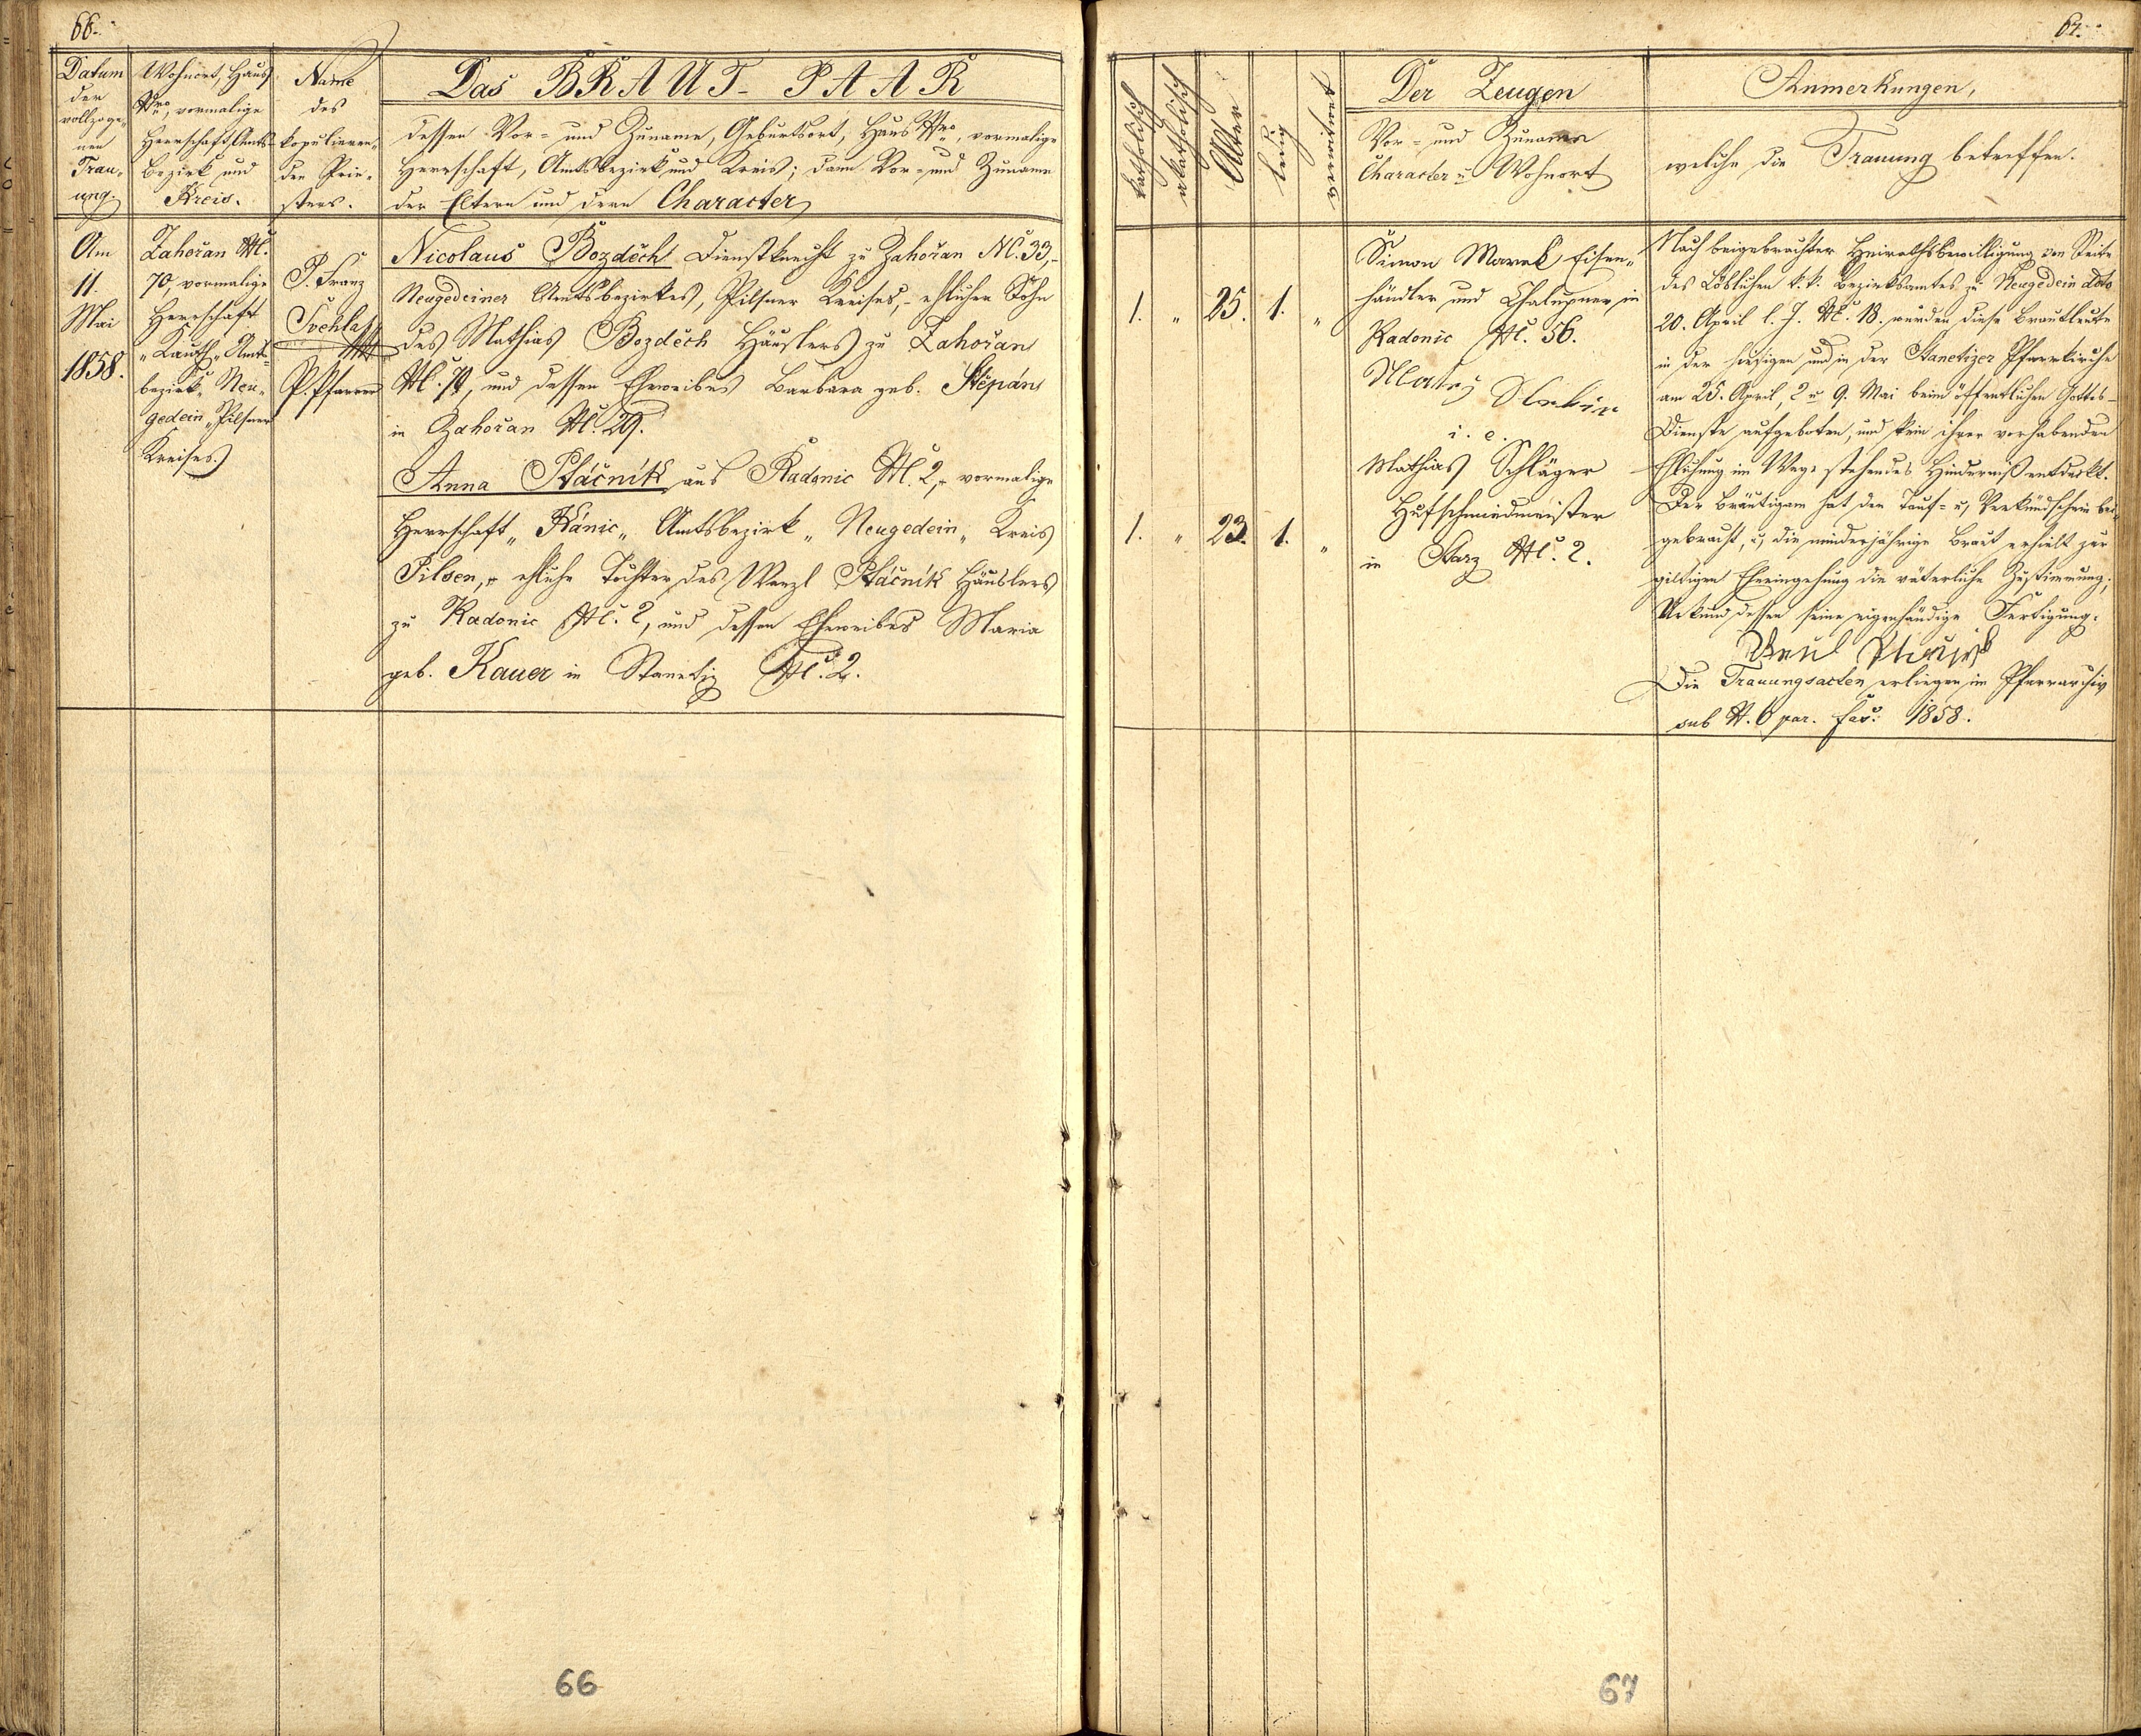 66.
Datum
der
vollzoge„
nen
Trau„
ung
Wohnort, Haus
Nro, vormalige
Herrschaft, Amts-
Bezirk und
Kreis.
Name
des
kopulieren„
den Prie„
sters.
Das BRAUT-PAAR
dessen Vor- und Zuname, Geburtsort, Haus Nro, vormalige
Herrschaft, Amtsbezirk und Kreis; dann Vor- und Zuname
der Eltern und deren Character
Am
11.
Mai
1858.
Zahořan NC.
70, vormalige
Herrschaft
„Kauth„ Amts-
bezirk „Neu„
gedein„ Pilsner
Kreises
P. Franz
Švehla
P. Pfarrer
Nicolaus Bozděch Dienstknecht zu Zahořan NC. 33,-
Neugedeiner Amtsbezirkes, Pilsner Kreises,- ehlicher Sohn
des Mathias Bozděch Häuslers zu Zahořan
NC. 70, und dessen Eheweibes Barbara geb. Štěpán
in Zahořan NC. 29.
Anna Ptáčník aus Radonic NC. 2,- vormalige
Herrschaft „Kánic„ Amtsbezirk „Neugedein„ Kreis
Pilsen,- ehliche Tochter des Wenzl Ptáčník Häuslers
zu Radonic NC. 2, und dessen Eheweibes Maria
geb. Kauer in Stanetiz NC. 2.
66
67.
katholisch
akatholisch
Alter
ledig
verwitwet
Der Zeugen
Vor- und Zuname
Character u. Wohnort
Anmerkungen,
welche die Trauung betreffen.
1. „ 25. 1. „
1. „ 23. 1. „
Simon Marek Eisen„
händler und Chalupner in
Radonic NC. 56.
Matěj
i. e.
Mathias Schläger
Hufschmiedmeister
in Starz NC. 2.
Nach beigebrachter Heirathsbewilligung von Seite
des Löblichen k. k. Bezirksamtes zu Neugedein ddto
20. April l. J. NC. 18. wurden diese Brautleute
in der hiesigen und in der Stanetizer Pfarrkirche
am 25. April, 2 u. 9. Mai beim öffentlichen Gottes-
Dienste aufgeboten, und kein ihrer vorhabenden
Ehlichung im Wege stehendes Hinderniß entdeckt.
Der Bräutigam hat den Tauf- u. Verkündschein bei„
gebracht, u. die minderjährige Braut erhielt zur
giltigen Eheeingehung die väterliche Zustimmung;
Urkund dessen seine eigenhändige Fertigung.
Die Trauungsacten erliegen im Pfarrarchiv
sub N. 6 par. fas: 1858.
67